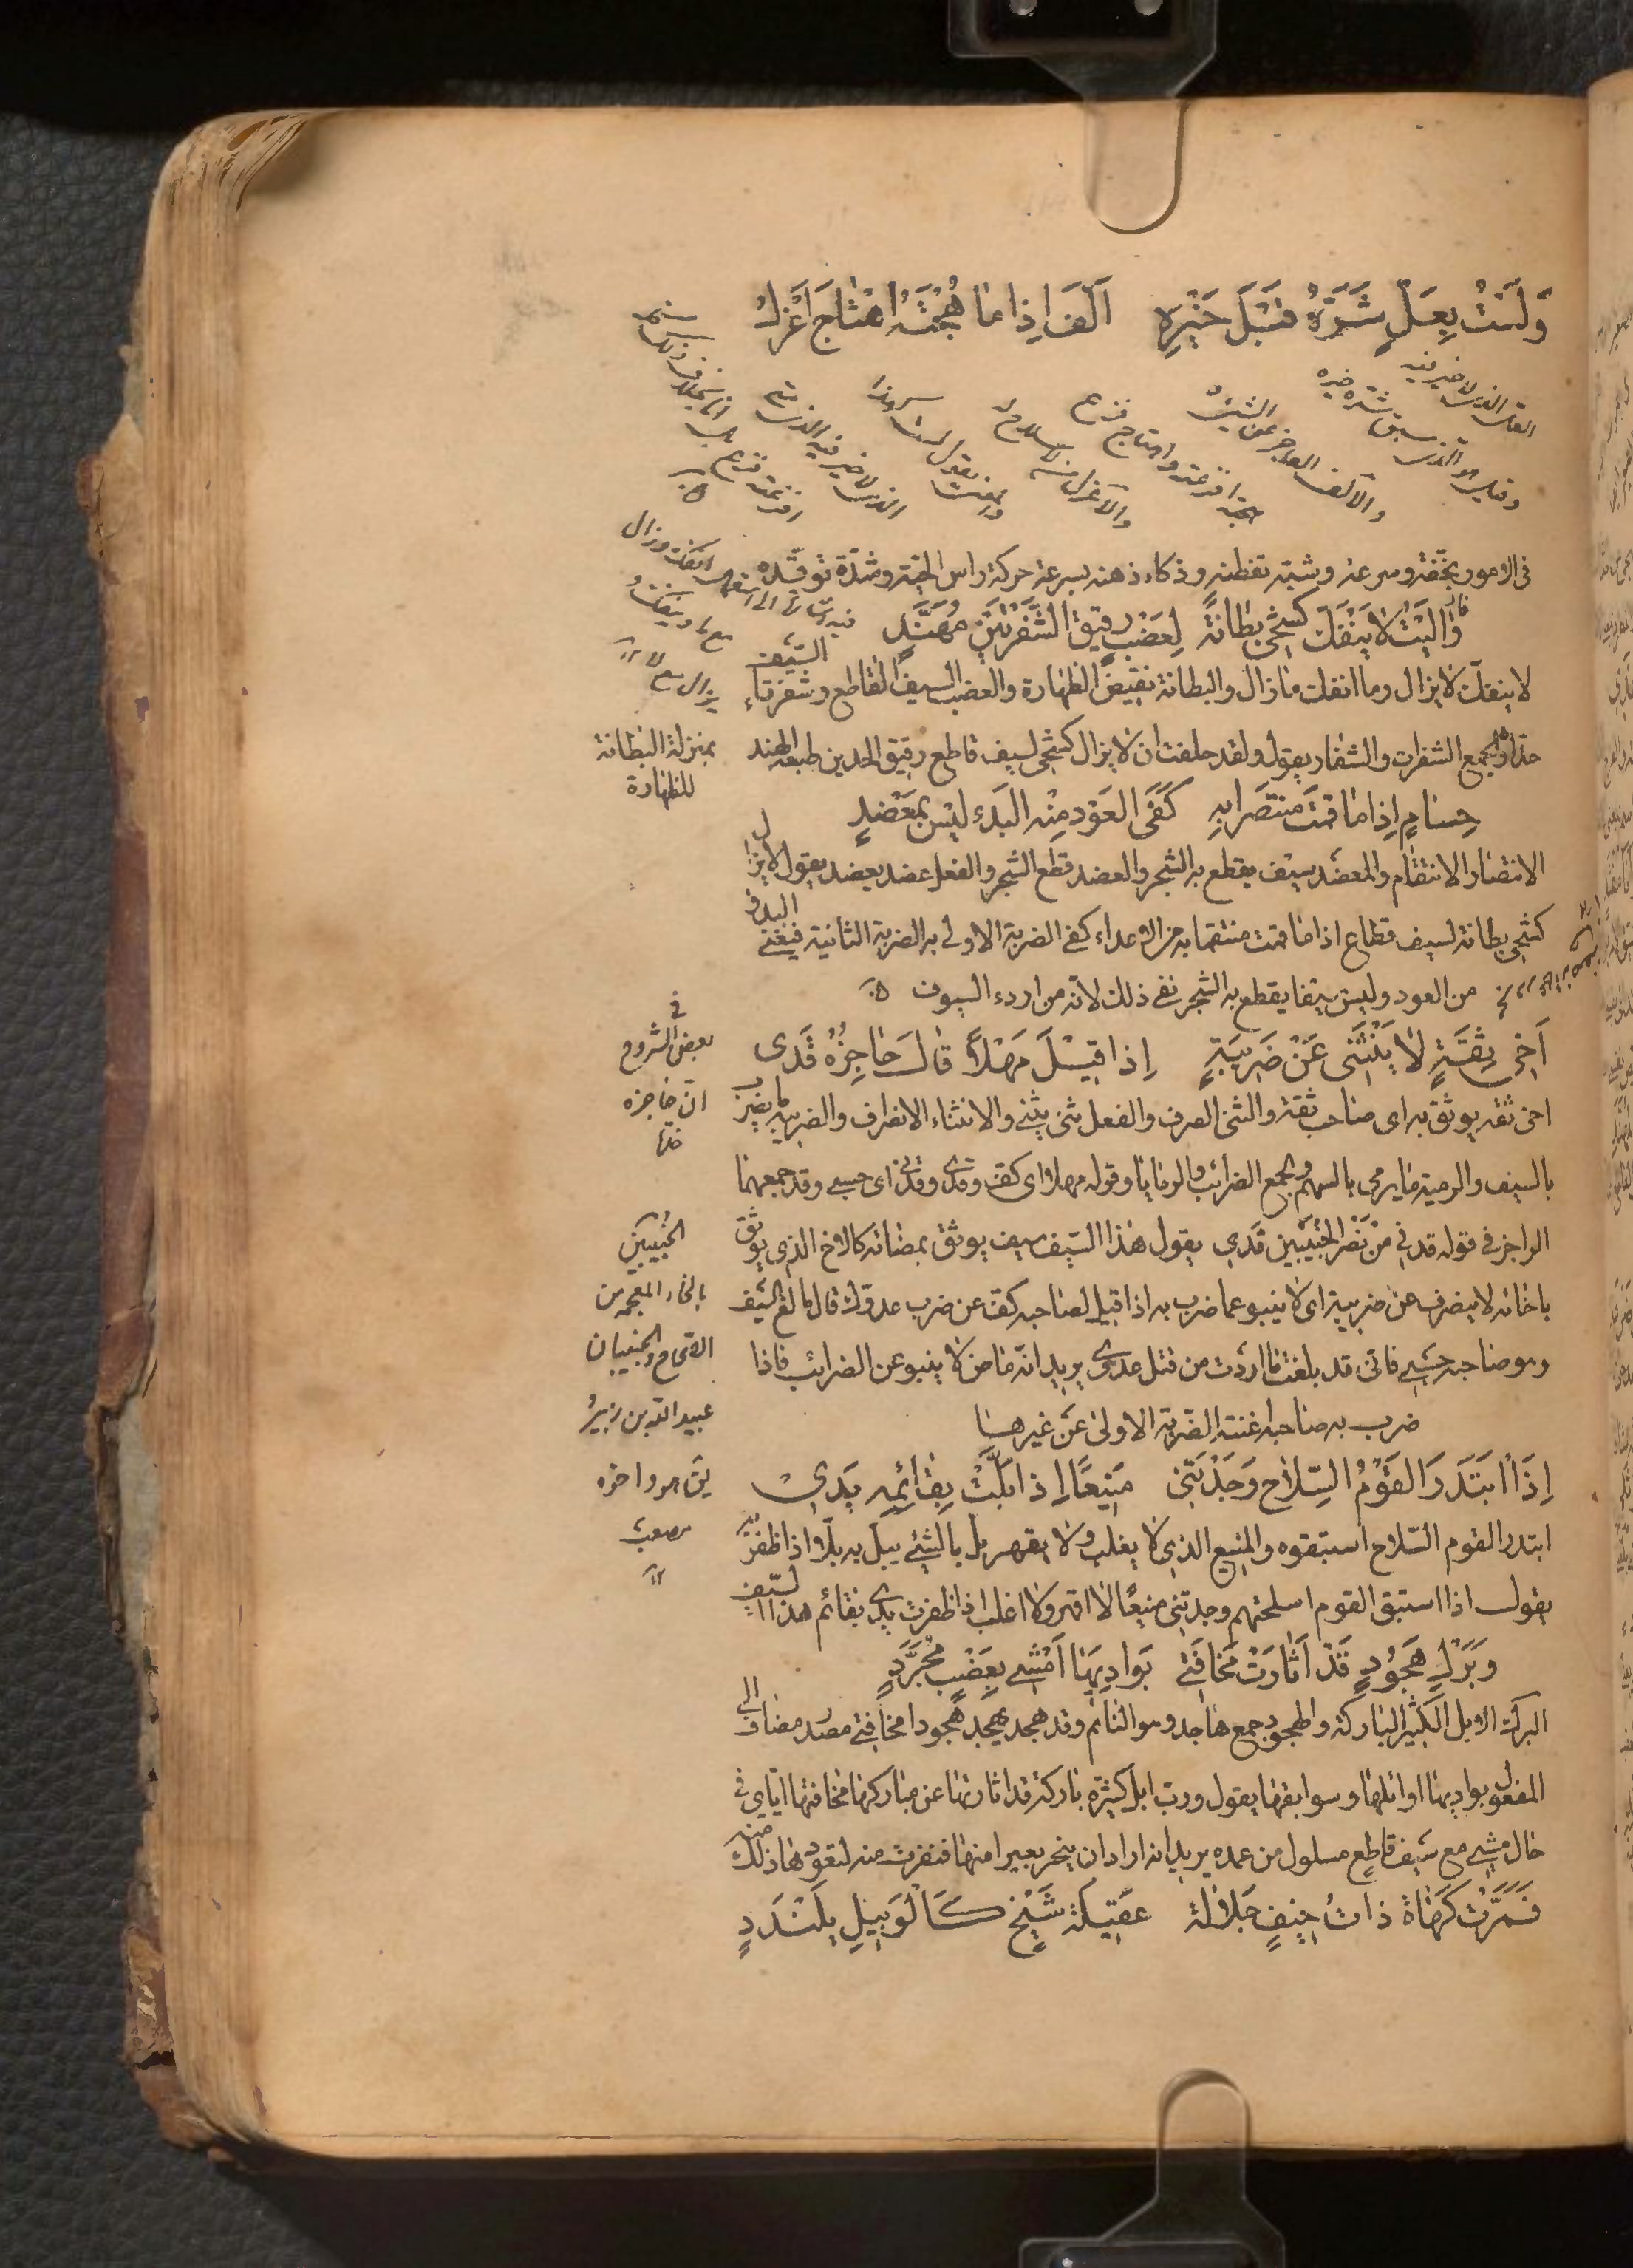 وَلَسْتُ بِعَلٍّ شَرُّهُ قَبْلَ خَيْرِهِ اَلَفَّ اِذا مَا هُجْتَهُ اهْتَاجَ اَعْزَلُ
العل الذى لا خير فيه
وقيل هو الذى سبق شره خيره
والالف العاجز عن الشئ
هجته افزعته واهتاج فزع
والاعزل لا سلاح
يقول لست
الذى لا خير فيه
افزعته فزع
فى الامور بخفته وسرعته وشبه تفطنه وذكاء ذهنه بسرعة حركة راس الحية وشدة توقده
وَالَيْتُ لا يَنْفَكُّ كَشْحِى بِطانَةً لِعَضْبٍ رَقيقِ الشَّفْرَتَيْنِ مُهَنَّدِ
لا ينفك لا يزال وما انفك ما زال والبطانة نقيض الظهارة والعضب السيف القاطع وشفرتا السيف
حداه والجمع الشفرات والشفار يقول ولقد حلفت ان لا يزال كشحى لسيف قاطع رقيق الحدين طبعه الهند
بمنزلة البطانة
للظهارة
حسامٍ اِذا ما قمتُ منتصرا بهِ كَفَى العَوْدَ مِنْه البَدء ليْسَ بمعْضدِ
الانتصار الانتقام والمعضد سيف يقطع به الشجر والعضد قطع الشجر والفعل عضد يعضد يقول لا يزال
كشحى بطانة لسيف قطاع اذا ما قمت منتقما به من الاعداء كفى الضربة الاولى به الضربة الثانية فيغنى البدؤ
من العود وليس سيفا يقطع به الشجر نفى ذلك لانه من اردء السيوف
اَخى ثِقَةٍ لا يَنْثَنى عَنْ ضَريبَةٍ اِذا قيْلَ مَهْلاً قالَ حاجِزُهُ قَدى
اخى ثقه يوثق به اى صاحب ثقة والثنى الصرف والفعل ثنى يثنى والانثناء الانصراف والضريبة ما يضرب
بالسيف والرمية ما يرمى بالسهم والجمع الضرائب والرمايا وقوله مهلا اى كف وقدى وقدنى اى حسبى وقد جمعهما
الراجز فى قوله قدنى من نصر الخبيبين قدى يقول هذا السيف سيف يوثق بمضائه كالاخ الذى يوثق
باخائه لا ينصرف عن ضريبة اى لا ينبو عما ضرب به اذا قيل لصاحبه كف عن ضرب عدوك قال مانع السيف
وهو صاحبه حسبى فانى قد بلغت ما اردت من قتل عدوى يريد انه ماض لا ينبو عن الضرائب فاذا
ضرب به صاحبه اغنته الضربة الاولى عن غيرها
فى
بعض الشروح
ان حاجزه
حده
الخُبيبين
بالخاء المعجمه من
الصحاح والخبيبان
عبيد الله بن زبير
هو واخوه
مصعب
اِذَا ابْتَدَرَ القَوْمُ السِّلاحَ وَجَدْتَنى مَنيعًا اِذا بَلَّتْ بِقائِمِهِ يَدى
ابتدر القوم السلاح استبقوه والمنيع الذى لا يغلب ولا يقهر بل بالشئ يبل به بلا اذا ظفر به
يقول اذا استبق القوم اسلحتهم وجدتنى منيعًا لا اقهر ولا اغلب اذا ظفرت يدى بقائم هذا السيف
وَبَرْكٍ هجودٍ قَدْ اَثارَتْ مَخافَتى بَوادِيَها اَمْشى بِعَضْبٍ مُجَرَّدِ
البرك الابل الكثير الباركة والهجود جمع هاجد وهو النائم وقد هجد يهجد هجودا مخافتى مصدر مضاف الى
المفعول بواديها اوائلها وسوابقها يقول ورب ابل كثيرة باركة قد اثارتها عن مباركها مخافتها اياى فى
حال مشيى مع سيف قاطع مسلول من غمده يريد انه اراد ان ينحر بعيرا منها فنفرت منه لتعودها ذلك منه
فَمَرَّتْ كَهاةٌ ذاتُ خَيْفٍ جَلالَةٌ عَقيلَةُ شَيْخٍ كَالْوَبيلِ يَلَنْدَدِ